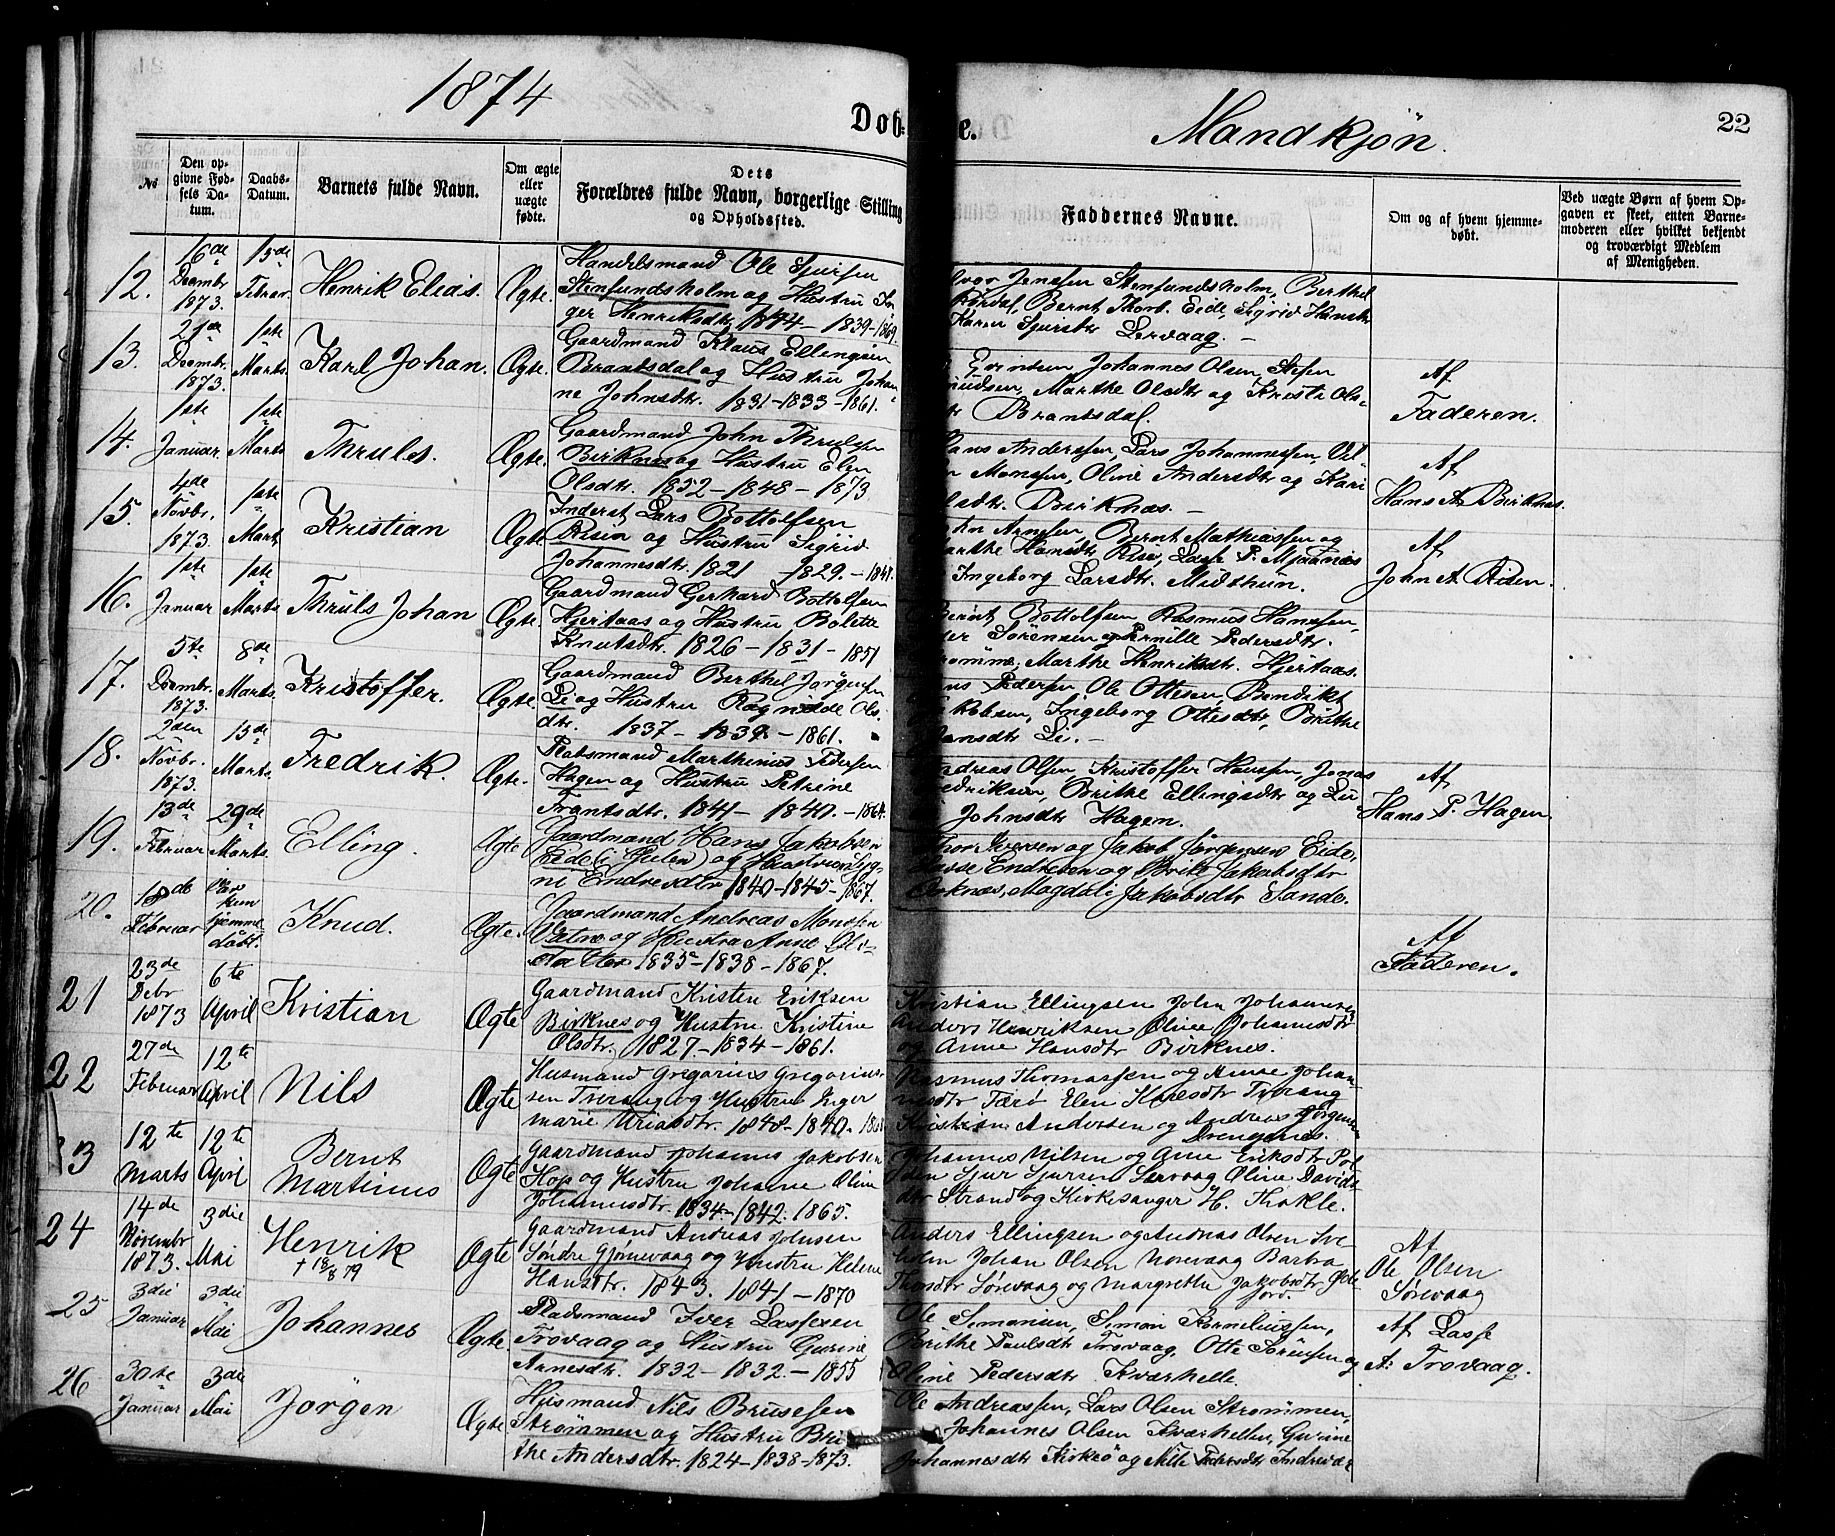 1874
Døb- e.
Mandkjøn.
22
No
Den opgivne Fødsels Datum.
Daabs-Datum.
Barnets fulde Navn.
Om ægte eller uægte fødte.
Dets Forældres fulde Navn, borgerlige Stilling og Opholdssted.
Faddernes Navne.
Om og af hvem hjemmedøbt.
Ved uægte Børn af hvem Opgaven er skeet, enten Barnemoderen eller hvilket bekjendt og troværdigt Medlem af Menigheden.
12. 16de Decembr 1873. 15de Februar. Henrik Elias. Ægte.
Handelsmand Ole Sjursen
Stensundsholm og Hustru In
ger Henriksdtr. 1844 - 1839 - 1869.
Jensen Stensundsholm, Berthel
Bernt Thorb. Eide, Sigrid Hansdtr
Karen Sjursdtr Lervaag. -
13. Decembr. 1873. 1ste Marts. Karl Johan. Ægte.
Gaardmand Klaus Ellingsen
Brandsdal og Hustru Johan
ne Johnsdtr. 1831 - 1833 - 1861.
Johannes Olsen
Marthe Olsdtr og Kristi Ols-
Brandsdal.
Af
Faderen.
14. 1ste Januar. 1ste Marts Thrules. Ægte.
Gaardmand John Thrulsen
Birknes og Hustru Elen
Olsdtr. 1852 - 1848 - 1873.
Hans Anderssen, Lars Johannessen,
Monsen, Oline Andersdtr og Kari
Olsdtr. Birknæs. -
Af
Hans A. Birknes.
15. 4de Novbr. 1873. 1ste Mart. Kristian Ægte.
Inderst Lars Bottolfsen
Risen og Hustru Sigrid
Johannesdtr. 1821 - 1829. - 1847.
John Arnesen, Bernt Mathiassen og
Marthe Hansdtr Risen, Lasse P. Mjaanæs
Ingeborg Larsdtr. Midthun.
Af
John A. Risen.
16. 1ste Januar 1ste Marts Thruls Johan Ægte.
Gaardmand Gerhard Bottolfsen
Hjertaas og Hustru Bolette
Knutsdtr. 1826 - 1831 - 1851
Bernt Bottolfsen Rasmus Hansen,
Sørensen og Pernille Pedersdtr.
Marthe Henriksdtr. Hjertaas.
17. 5te Decembr. 1873. 8de Marts. Kristoffer. Ægte.
Gaardmand Berthel Jørgensen
Li og Hustru Ragnilde Ols-
dtr. 1837 - 1839. - 1861.
Hans Pedersen, Ole Ottesen, Bendikt
Jakobsen, Ingeborg Ottesdtr, Brithe
Hansdtr Li. -
18. 2den Novbr. 1873. 15de Marts. Fredrik. Ægte.
Pladsmand Marthinus Pedersen
Hagen og Hustru Petrine
Frantsdtr. 1841 - 1840. - 1864.
Andreas Olsen, Kristoffer Hansen, Jonas
Fredriksen, Brithe Ellingsdtr og Lu
Johnsdtr Hagen.
Af
Hans P. Hagen
19. 13de Februar 29de Marts. Elling. Ægte
Gaardmand Hans Jakobsen
Eide (i Gulen) og Hustru Syg-
ne Endresdtr 1840 - 1845 - 1867.
og Jakob Jørgensen Eide,
Lasse Endresen og Brite Jakobsdtr
Magdali Jakobsdtr Sande.
20. 18de Februar Var kun hjemme døbt. Knud. Ægte.
Gaardmand Andreas Monsen
Vatne og Hustru Anne Ols-
datter 1835 - 1838 - 1867.
Af
Faderen.
21 23de Debr 1873 6te April Kristian Ægte
Gaardmand Kristen Eriksen
Birknes og Hustru Kristine
Olsdtr. 1827. - 1834 - 1861.
Kristian Ellingsen John Johannesen
Anders Henriksen Oline Johannesdtr
og Anne Hansdtr Birknes.
22 27de Februar 12te April Nils Ægte
Husmand Gregorius Gregorius-
sen Tverang og Hustru Inger
marie Uriasdtr. 1848 - 1840.
Rasmus Thomassen og Anne Johan-
nesdtr Færø Elen Karesdtr Tverang
Kristian Andersen og Andreas Jørgensen
Drengenes.
23 12te Marts 12te April Bernt Martinus Ægte
Gaardmand Johannes Jakobsen
Hop og Hustru Johanne Oline
Johannesdtr. 1834 - 1842. 1865.
Johannes Nilsen og Anne Eriksdtr
Sjur Sjursen Lervaag Oline Davids
dtr Strand og Kirkesanger H. Thokle.
24 14de Novembr 1873. 3die Mai Henrik Ægte
† 18/8 79
Gaardmand Andreas Johnsen
Søndre Gjønevaag og Hustru Helene
Hansdtr. 1843. 1841 - 1870
Anders Ellingsen og Andreas Olsen
Johan Olsen Norevaag Barbra
Thosdtr Sørevaag og Margrethe Jakobsdtr
Af
Ole Olsen
Sørevaag
25 3die Januar 3die Mai Johannes Ægte.
Pladsmand Iver Lassesen
Trovaag og Hustru Gurine
Arnesdtr. 1832 - 1832 - 1855
Ole Simonsen, Simon Korneliussen,
Brithe Paulsdtr Trovaag, Otte Sørensen og
Oline Pedersdtr Kværhelle.
Af Lasse
A. Trovaag.
26 30te Januar 3die Mai Jørgen Ægte
Husmand Nils Brusesen
Strømmen og Hustru Bri
the Andersdtr. 1824 - 1838 - 1873.
Ole Andreassen, Lars Olsen Strømmen,
Johannes Olsen Kværhellen, Gurine
Johannesdtr Kirkeø og Nille Pedersdtr Indrevær